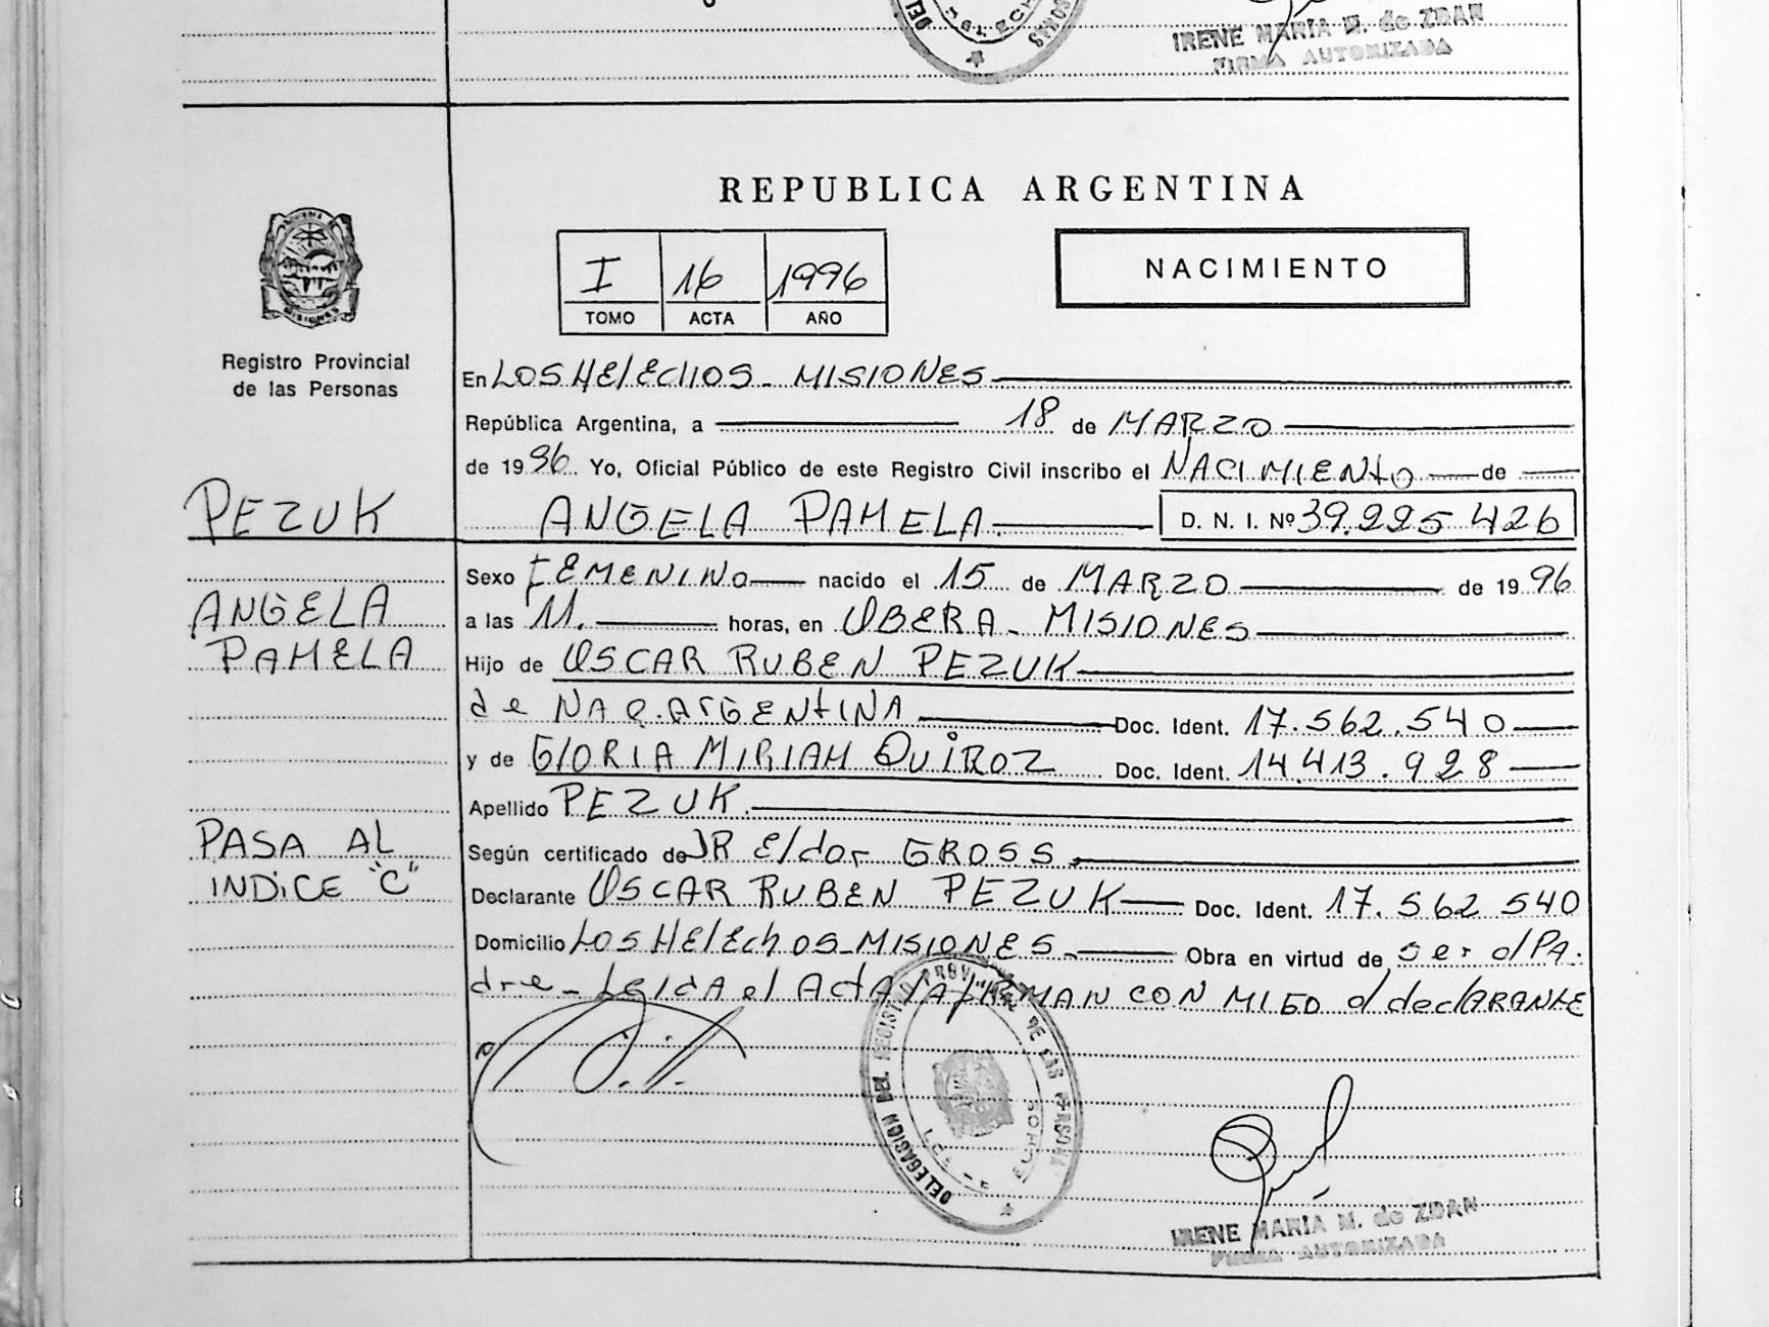 IRENE MARIA M. de ZDAN
FIRMA AUTORIZADA
REPUBLICA ARGENTINA
I 16 1996
TOMO ACTA AÑO
NACIMIENTO
MISIONES
Registro Provincial
de las Personas
En LOS HElEcHOS - MISIONES
República Argentina, a 18 de MARZO
de 1996. Yo, Oficial Público de este Registro Civil inscribo el NACIMIENtO de
PEZUK
ANGELA PAMELA. D. N. I. Nº 39.225 426
Sexo FEMENINO nacido el 15 de MARZO de 1996
ANGELA
PAMELA
a las 11. horas, en OBERA - MISIONES
Hijo de OSCAR RUBEN PEZUK
de NAC. ArGENtINA Doc. Ident. 17.562.540
y de GlORIA MIRIAM QUIROZ Doc. Ident. 14.413.928
Apellido PEZUK.
PASA AL
INDiCE "C"
Según certificado de DR Eldor GROSS.
Declarante OSCAR RUBEN PEZUK Doc. Ident. 17.562 540
Domicilio LOS HElEchOS - MISIONES. Obra en virtud de ser el PA-
dre - LeidA el ActA lA FIRMAN CON MIGO el declARANtE
DELEGACION DEL REGISTRO PROVINCIAL DE LAS PERSONAS
IRENE MARIA M. de ZDAN
FIRMA AUTORIZADA